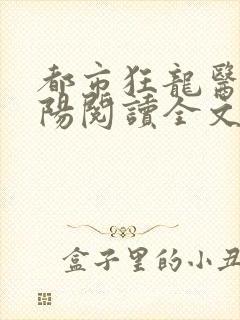 都市狂龍醫
陽閱讀全文
盒子里的小丑